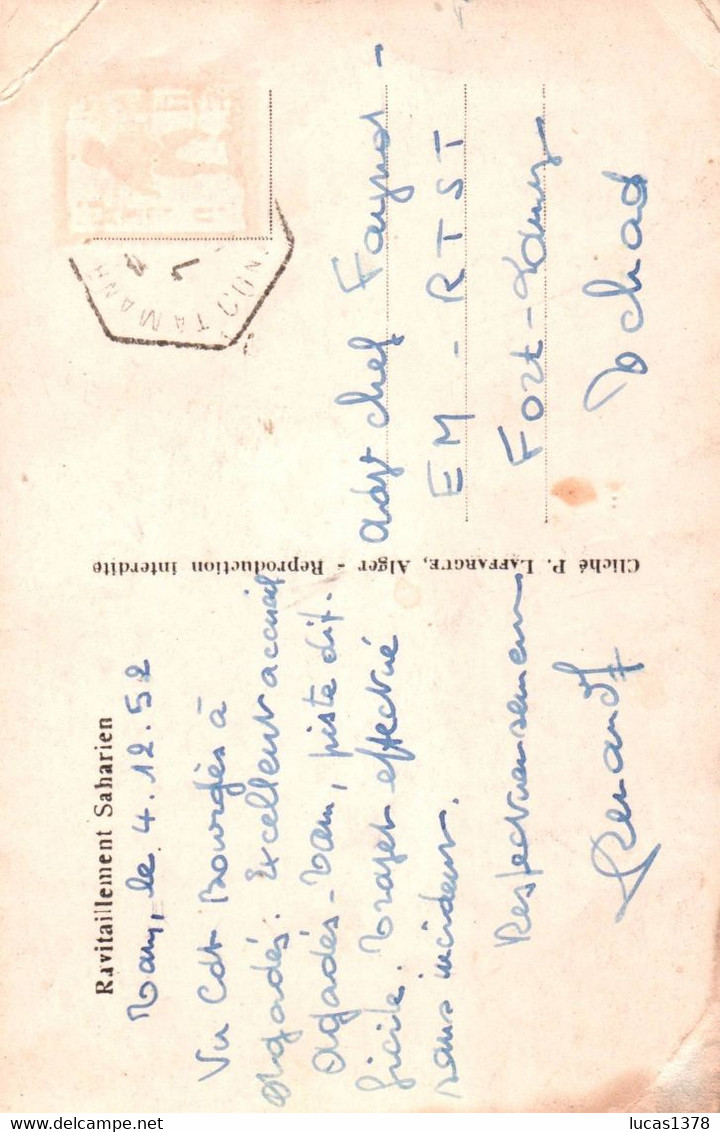 Ravitaillement Saharien
Tam, le 4.12.52
Vu Cdt Bourgès à
Agadès. Excellent accueil
Agadès-Tam, piste dif-
ficile. Trajet effectué
sans incident.
Respectueusement
Cliché P. LAFFARGUE, Alger - Reproduction interdite
TAMANR
Adjt chef
EM - RTST
Fort-Lamy
Tchad
delcampe.net
lucas1378